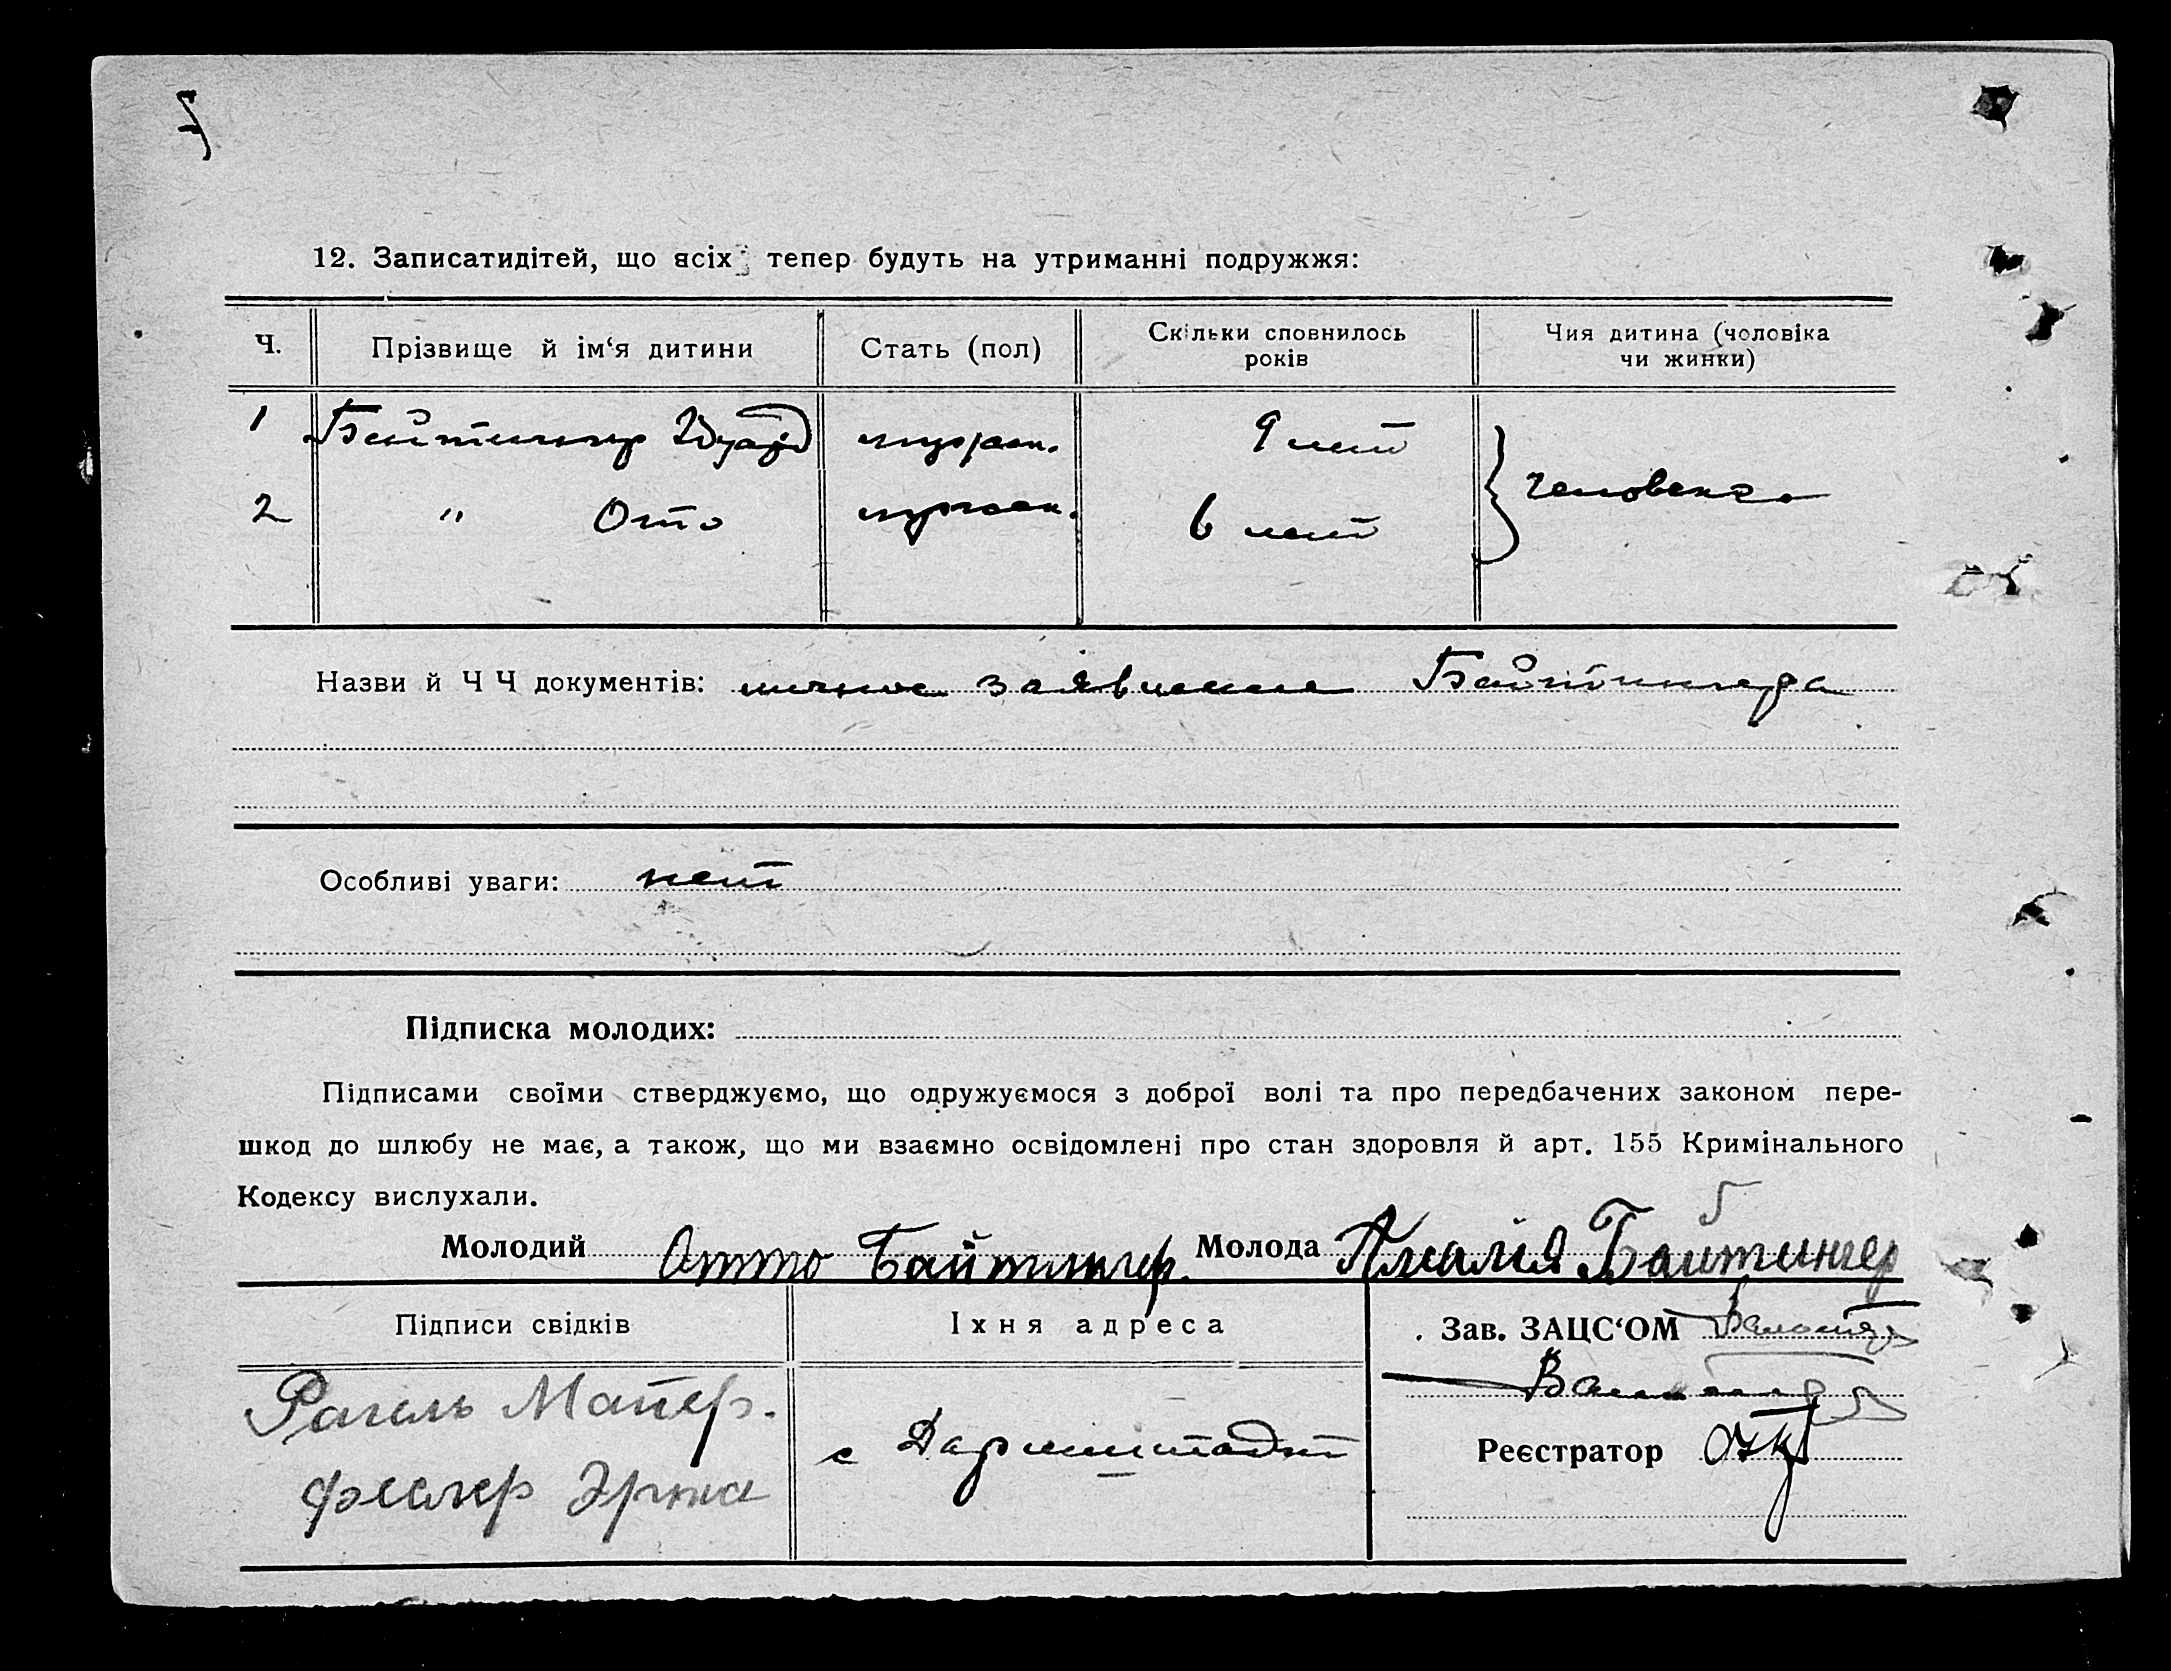 12. Записатидітей, що всіх тепер будуть на утриманні подружжя:
Ч. Прізвище й ім‘я дитини Стать (пол) Скільки сповнилось років Чия дитина (чоловіка чи жинки)
1 Байтингер Эдуард мужск. 9 лет
человека
2 " Отто мужск. 6 лет
Назви й Ч Ч документів: личное заявление Байтингера
Особливі уваги: нет
Підписка молодих:
Підписами своїми стверджуємо, що одружуємося з доброї волі та про передбачених законом пере-
шкод до шлюбу не має, а також, що ми взаємно освідомлені про стан здоровля й арт. 155 Кримінального
Кодексу вислухали.
Молодий Отто Байтингер Молода Амалія Байтингер
Підписи свідків Їхня адреса Зав. ЗАЦС‘ОМ
Майер.
с Дармштадт
Реєстратор